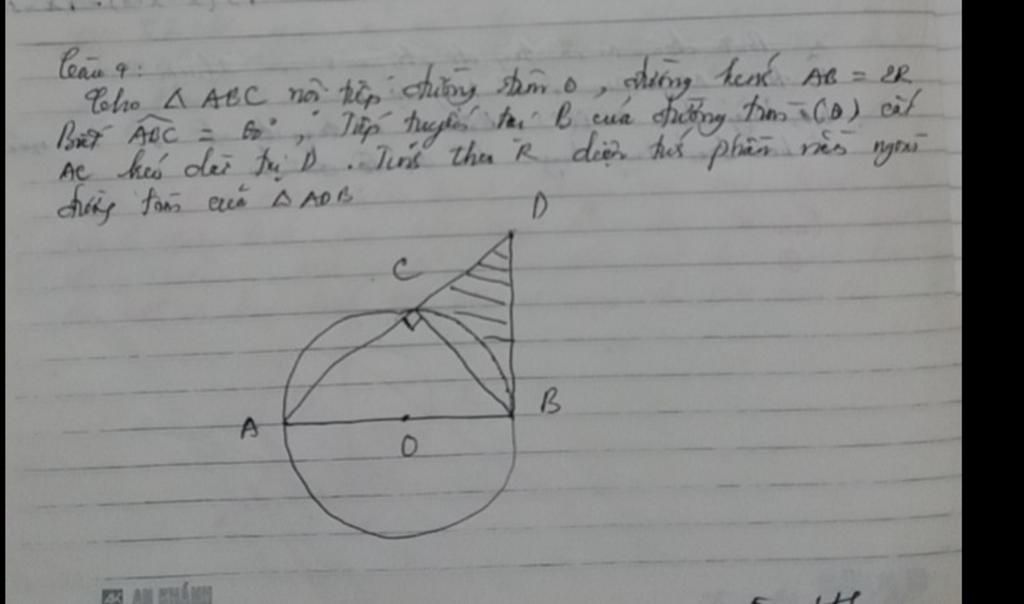 Câu 9:
Cho △ ABC nội tiếp đường tâm O, đường kính AB = 2R
Biết ABC = 60°, Tiếp tuyến tại B của đường tròn (O) cắt
AC kéo dài tại D. Tính theo R diện tích phần nằm ngoài
đường tròn của △ ADB
D
C
A
B
O
AN KHÁNH